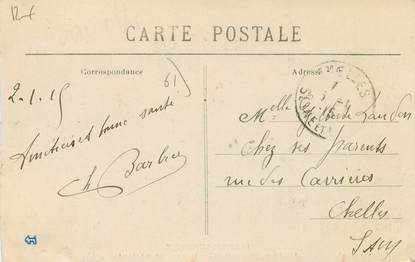 CARTE POSTALE
Correspondance
Adresse
61
CHELLES
2.1.15
Amitiés et bonne santé
Ch Barbier
Melle Landon
Chez ses parents
rue des Carrières
Chelles
S & M